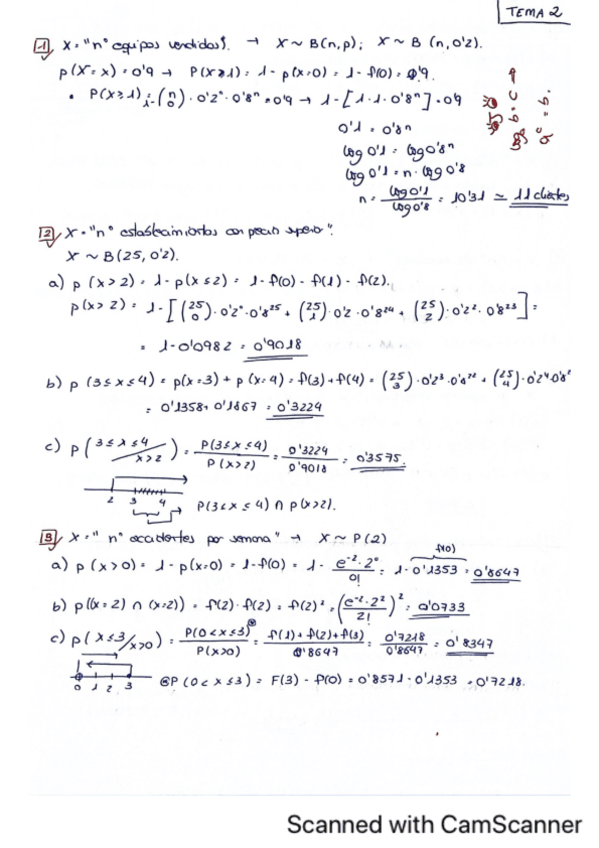 TEMA 2
1 X = "nº equipos vendidos". → X ~ B(n,p); X ~ B (n, 0'2).
p(X=x) = 0'9 → P(X≥1) = 1 - p(x=0) = 1 - f(0) = 0'9.
• P(x≥1) = 1 - (n 0) · 0'2⁰ · 0'8ⁿ = 0'9 → 1 - [1·1·0'8ⁿ] = 0'9
0'1 = 0'8ⁿ
log 0'1 = log 0'8ⁿ
log 0'1 = n · log 0'8
n = log 0'1 / log 0'8 = 10'31 ≃ 11 clientes
2 X = "nº establecimientos con precio superior".
X ~ B(25, 0'2).
a) p (x>2) = 1 - p(x≤2) = 1 - f(0) - f(1) - f(2).
p(x>2) = 1 - [(25 0) · 0'2⁰ · 0'8²⁵ + (25 1) · 0'2 · 0'8²⁴ + (25 2) · 0'2² · 0'8²³] =
= 1 - 0'0982 = 0'9018
b) p (3≤x≤4) = p(x=3) + p(x=4) = f(3) + f(4) = (25 3) · 0'2³ · 0'8²² + (25 4) · 0'2⁴ · 0'8²¹
= 0'1358 + 0'1867 = 0'3224
c) p (3≤x≤4 / x>2) = P(3≤x≤4) / P(x>2) = 0'3224 / 0'9018 = 0'3575.
2 3 4
P(3≤x≤4) ∩ p(x>2).
3 X = "nº accidentes por semana" → X ~ P(2)
f(0)
a) p (x>0) = 1 - p(x=0) = 1 - f(0) = 1 - e⁻² · 2⁰ / 0! = 1 - 0'1353 = 0'8647
b) p((x=2) ∩ (x=2)) = f(2) · f(2) = f(2)² = (e⁻² · 2² / 2!)² = 0'0733
c) p (x≤3 / x>0) = P(0<x≤3) / P(x>0) = f(1) + f(2) + f(3) / 0'8647 = 0'7218 / 0'8647 = 0'8347
0 1 2 3
P (0<x≤3) = F(3) - f(0) = 0'8571 - 0'1353 = 0'7218.
Scanned with CamScanner